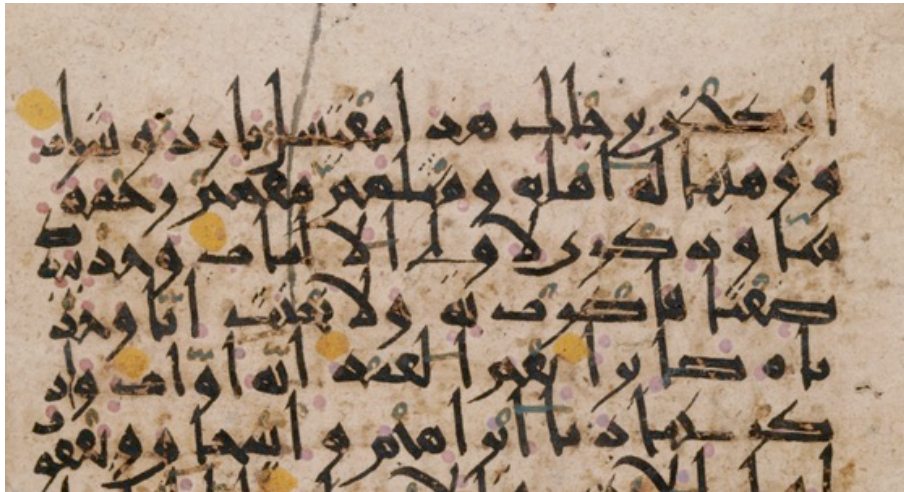 اركض برجلك هذا مغتسل بارد وشراب
ووهبنا له اهله ومثلهم معهم رحمة
منا وذكرى لاولي الالباب وخذ بيدك
ضغثا فاضرب به ولا تحنث انا وجد
ناه صابرا نعم العبد انه اواب واذ
كر عبادنا ابراهيم واسحاق ويعقوب